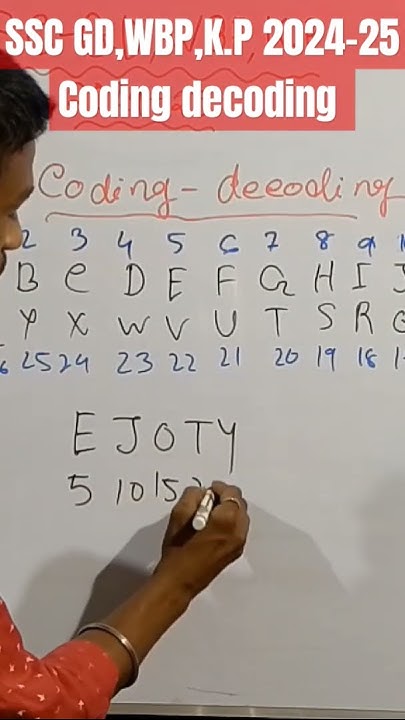 SSC GD,WBP,K.P 2024-25
Coding decoding
Coding - decoding
2 3 4 5 6 7 8 9
B C D E F G H I J
Y X W V U T S R
25 24 23 22 21 20 19 18
E J O T Y
5 10 15